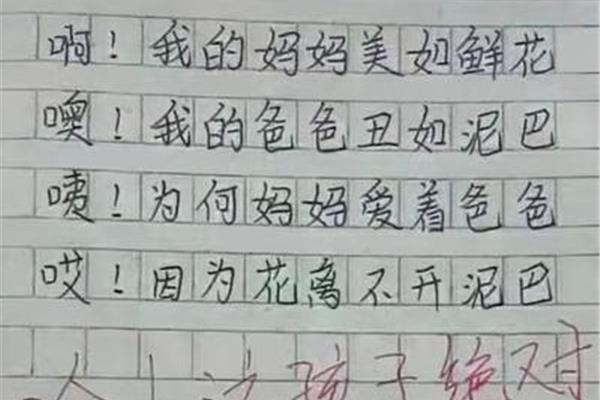 啊！我的妈妈美如鲜花
噢！我的爸爸丑如泥巴
咦！为何妈妈爱着爸爸
哎！因为花离不开泥巴
这孩子绝对